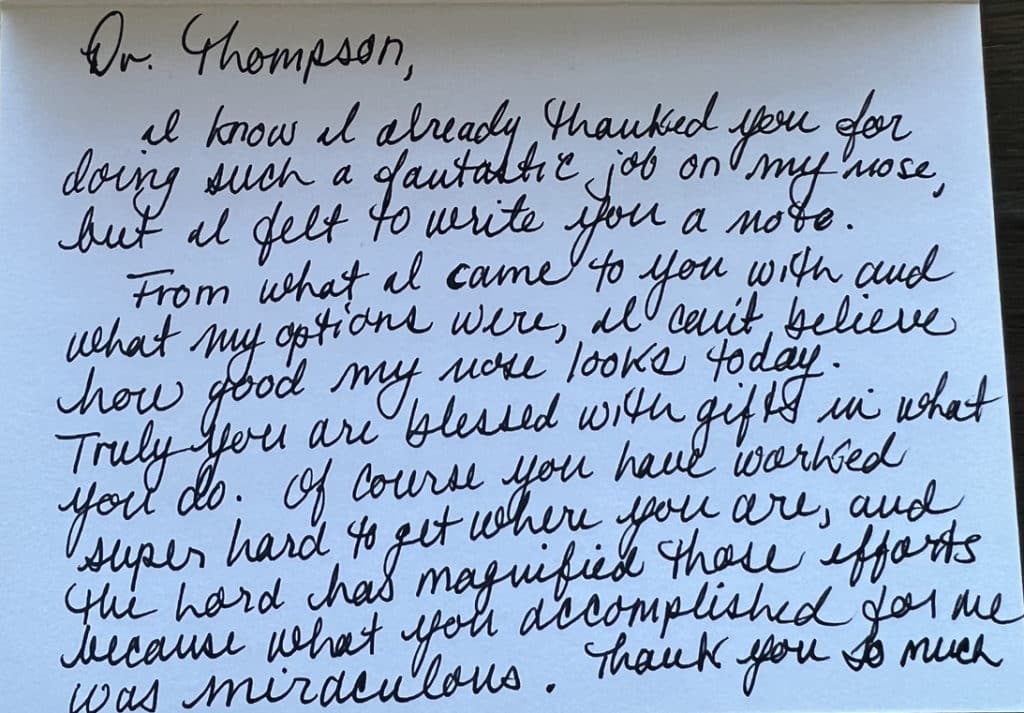 Dr. Thompson,
I know I already thanked you for
doing such a fantastic job on my nose,
but I felt to write you a note.
From what I came to you with and
what my options were, I can't believe
how good my nose looks today.
Truly you are blessed with gifts in what
you do. Of course you have worked
super hard to get where you are, and
the hord has magnified those efforts
because what you accomplished for me
was miraculous. Thank you so much